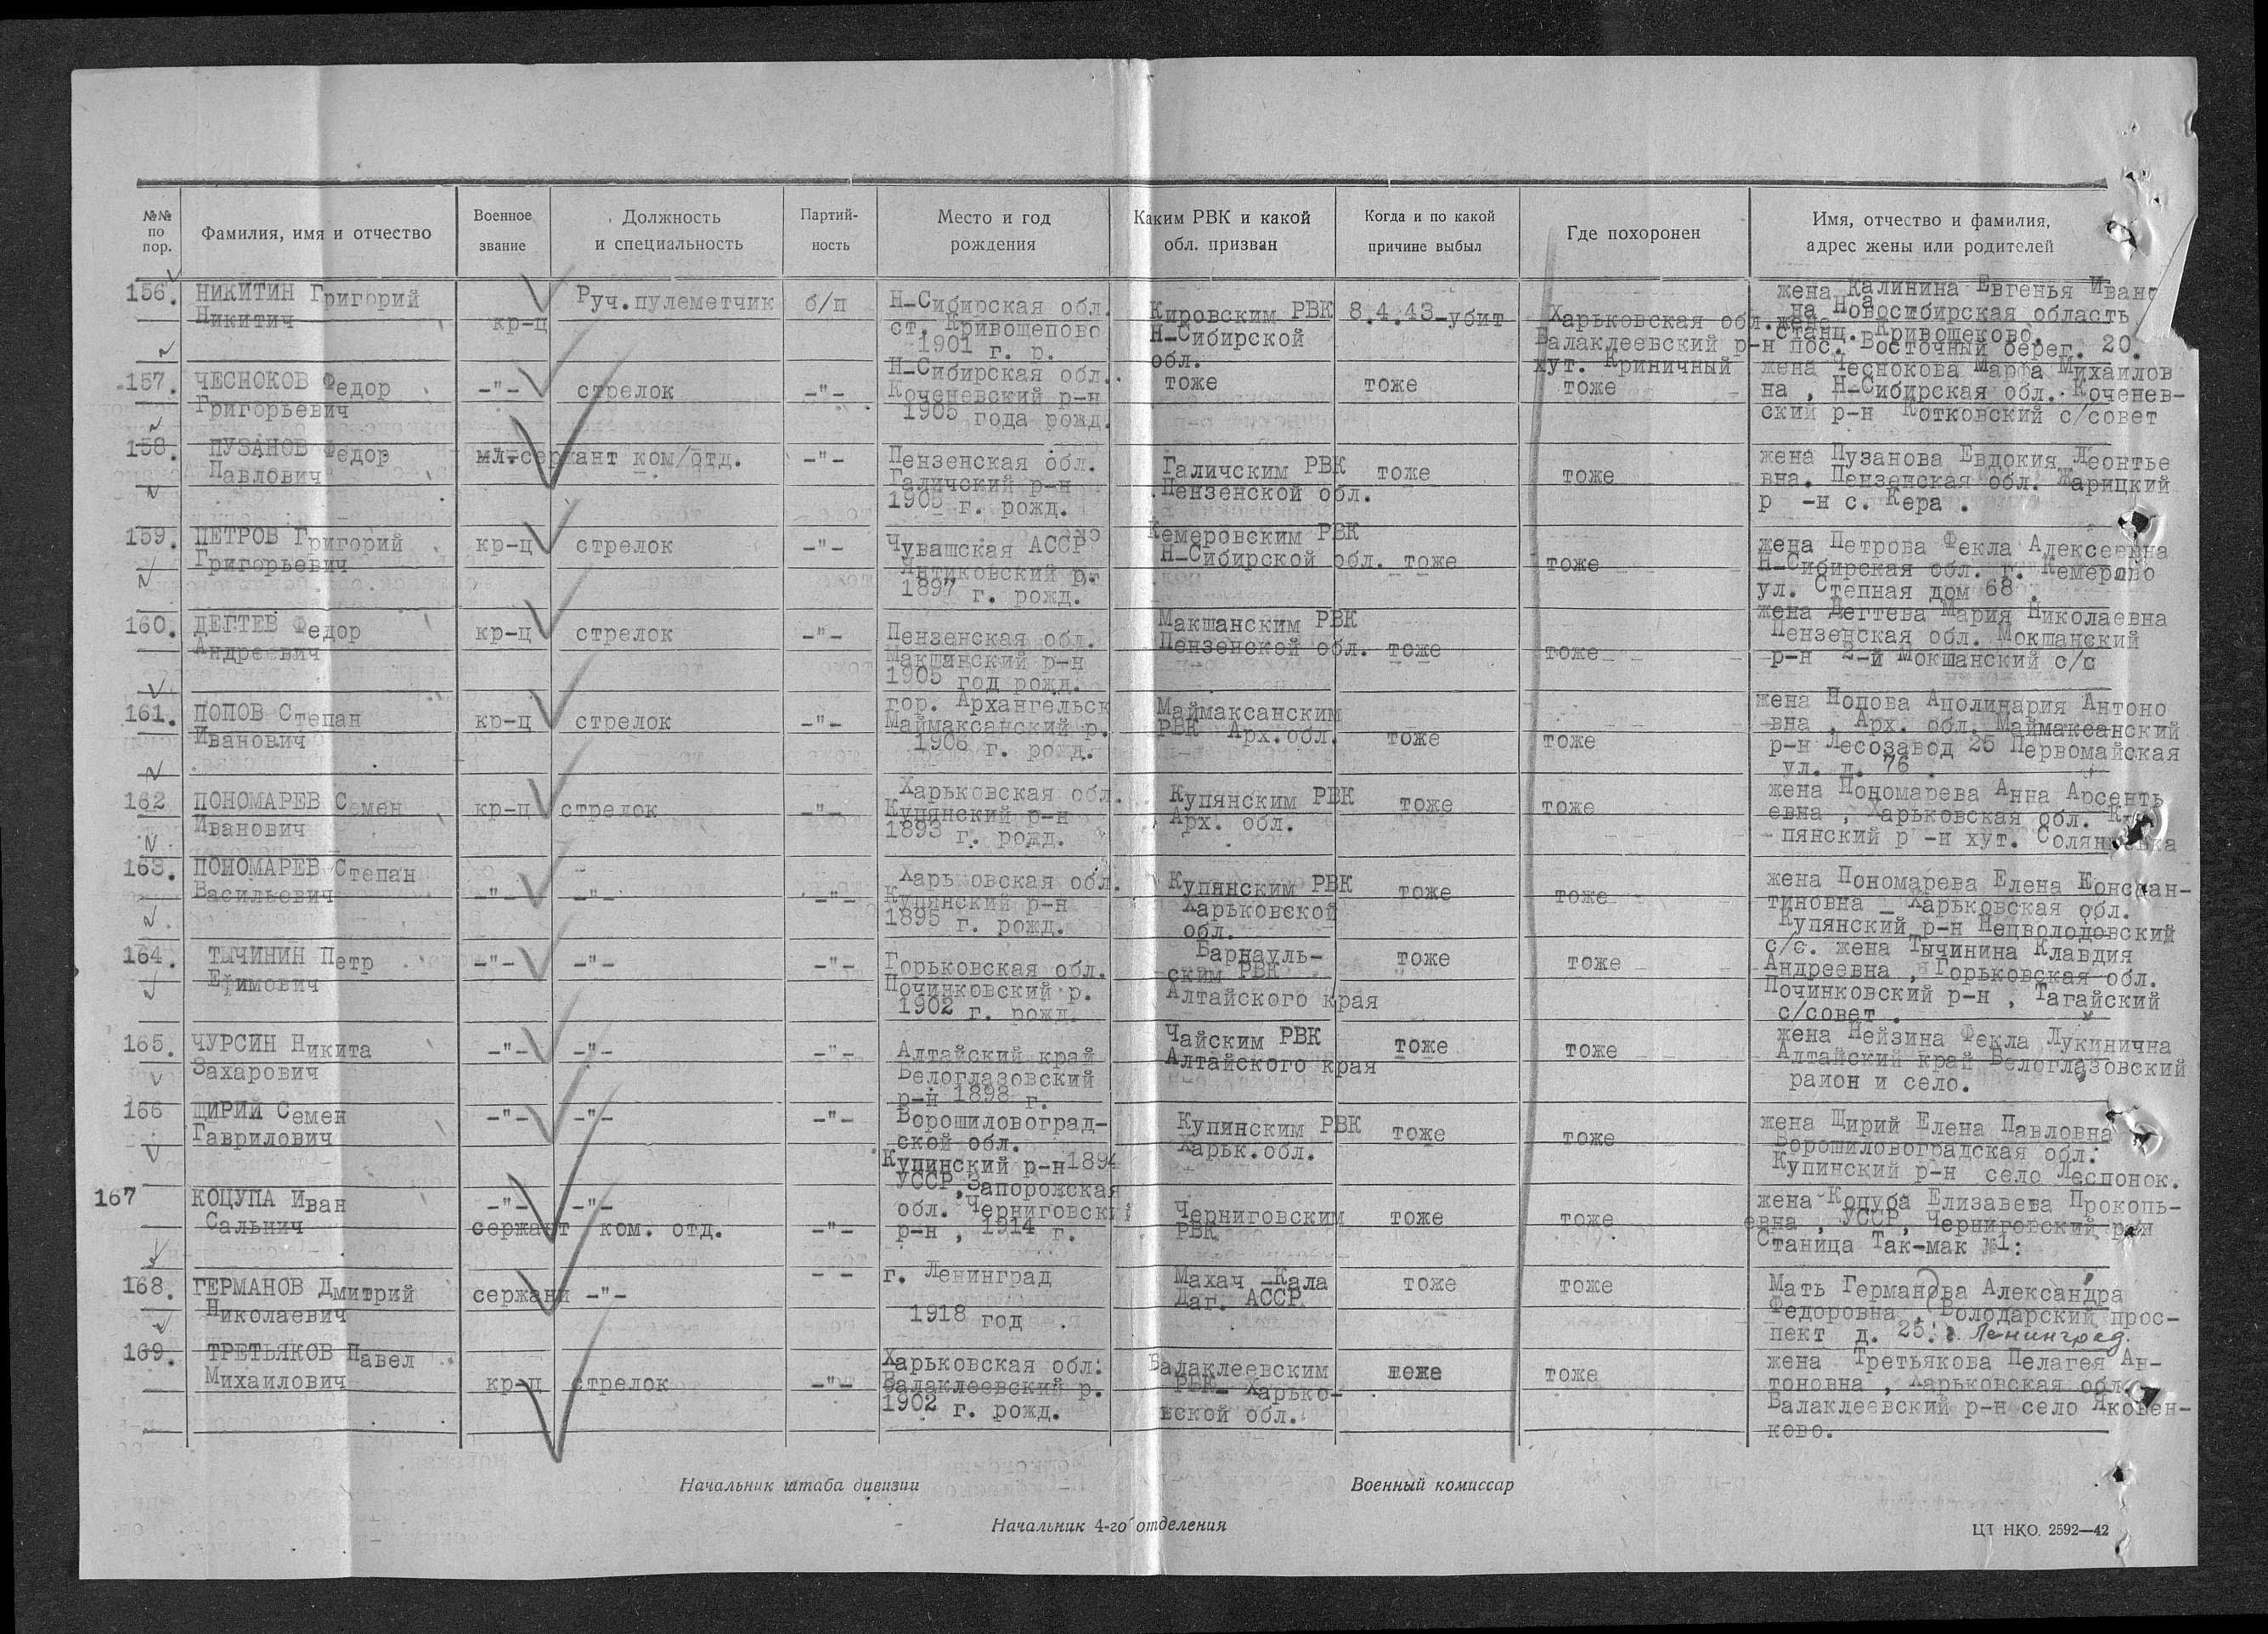 №№ по пор.
Фамилия, имя и отчество
Военное звание
Должность и специальность
Партий-ность
Место и год рождения
Каким РВК и какой обл. призван
Когда и по какой причине выбыл
Где похоронен
Имя, отчество и фамилия, адрес жены или родителей
156.
НИКИТИН Григорий
Никитич
кр-ц
Руч.пулеметчик
б/п
Н-Сибирская обл.
ст. Кривощепово
1901 г. р.
Кировским РВК
Н-Сибирской
обл.
8.4.43-убит
Харьковская обл.
Балаклеевский р-н
хут. Криничный
жена Калинина Евгенья Ивано
на Новосибирская область
станц. Кривощеково.
пос. Восточный берег. 20.
157.
ЧЕСНОКОВ Федор
Григорьевич
-"-
стрелок
-"-
Н-Сибирская обл.
Коченевский р-н
1905 года рожд.
тоже
тоже
тоже
жена Чеснокова Марфа Михайлов
на , Н-Сибирская обл. Коченев-
ский р-н Котковский с/совет
158.
ПУЗАНОВ Федор
Павлович
мл-сержант
ком/отд.
-"-
Пензенская обл.
Галичский р-н
1905 г. рожд.
Галичским РВК
Пензенской обл.
тоже
тоже
жена Пузанова Евдокия Леонтье
вна. Пензенская обл. Жарицкий
р -н с. Кера .
159.
ПЕТРОВ Григорий
Григорьевич
кр-ц
стрелок
-"-
Чувашская АССР
Янтиковский р.
1897 г. рожд.
Кемеровским РВК
Н-Сибирской обл.
тоже
тоже
жена Петрова Фекла Алексеевна
Н-Сибирская обл. г. Кемерово
ул. Степная дом 68 .
160.
ДЕГТЕВ Федор
Андреевич
кр-ц
стрелок
-"-
Пензенская обл.
Макшанский р-н
1905 год рожд.
Макшанским РВК
Пензенской обл.
тоже
тоже
жена Дегтева Мария Николаевна
Пензенская обл. Мокшанский
р-н 2-й Мокшанский с/с
161.
ПОПОВ Степан
Иванович
кр-ц
стрелок
-"-
гор. Архангельск
Маймаксанский р.
1906 г. рожд.
Маймаксанским
РВК Арх.обл.
тоже
тоже
жена Попова Аполинария Антоно
вна , Арх. обл. Маймаксанский
р-н Лесозавод 25 Первомайская
ул. д. 76 .
162
ПОНОМАРЕВ Семен
Иванович
кр-ц
стрелок
-"-
Харьковская обл.
Купянский р-н
1893 г. рожд.
Купянским РВК
Арх. обл.
тоже
тоже
жена Пономарева Анна Арсенть
евна , Харьковская обл.
пянский р -н хут.
163.
ПОНОМАРЕВ Степан
Васильевич
-"-
-"-
-"-
Харьковская обл.
Купянский р-н
1895 г. рожд.
Купянским РВК
Харьковской
обл.
тоже
тоже
жена Пономарева Елена Констан-
тиновна - Харьковская обл.
Купянский р-н Нецволодовский
с/с.
164.
ТЫЧИНИН Петр
Ефимович
-"-
-"-
-"-
Горьковская обл.
Починковский р.
1902 г. рожд.
Барнауль-
ским РВК
Алтайского края
тоже
тоже
жена Тычинина Клавдия
Андреевна , Горьковская обл.
Починковский р-н , Тагайский
с/совет .
165.
ЧУРСИН Никита
Захарович
-"-
-"-
-"-
Алтайский край
Белоглазовский
р-н 1898 г.
Чайским РВК
Алтайского края
тоже
тоже
жена Нейзина Фекла Лукинична
Алтайский край Белоглазовский
район и село.
166
ЩИРИЙ Семен
Гаврилович
-"-
-"-
-"-
Ворошиловоград-
ской обл.
Купинский р-н 1894
Купинским РВК
Харьк.обл.
тоже
тоже
жена Щирий Елена Павловна
Ворошиловоградская обл.
Купинский р-н село Леспонок.
167
КОЦУПА Иван
Сальнич
-"-
сержант
-"-
ком. отд.
-"-
УССР,Запорожская
обл. Черниговский
р-н , 1914 г.
Черниговским
РВК
тоже
тоже
жена Коцуба Елизавета Прокопь-
евна , УССР, Черниговский р-н
Станица Так-мак №1:
168.
ГЕРМАНОВ Дмитрий
Николаевич
сержани
-"-
- -
г. Ленинград
1918 год .
Махач -Кала
Даг. АССР
тоже
тоже
Мать Германова Александра
Федоровна , Володарский прос-
пект д. 25. г. Ленинград.
169.
ТРЕТЬЯКОВ Павел
Михайлович
кр-ц
стрелок
-"-
Харьковская обл.
Балаклеевский р.
1902 г. рожд.
Балаклеевским
РВК- Харько-
вской обл.
тоже
тоже
жена Третьякова Пелагея Ан-
тоновна , Харьковская обл.
Балаклеевский р-н село Яковен-
ково.
Начальник штаба дивизии
Военный комиссар
Начальник 4-го отделения
ЦТ НКО. 2592—42